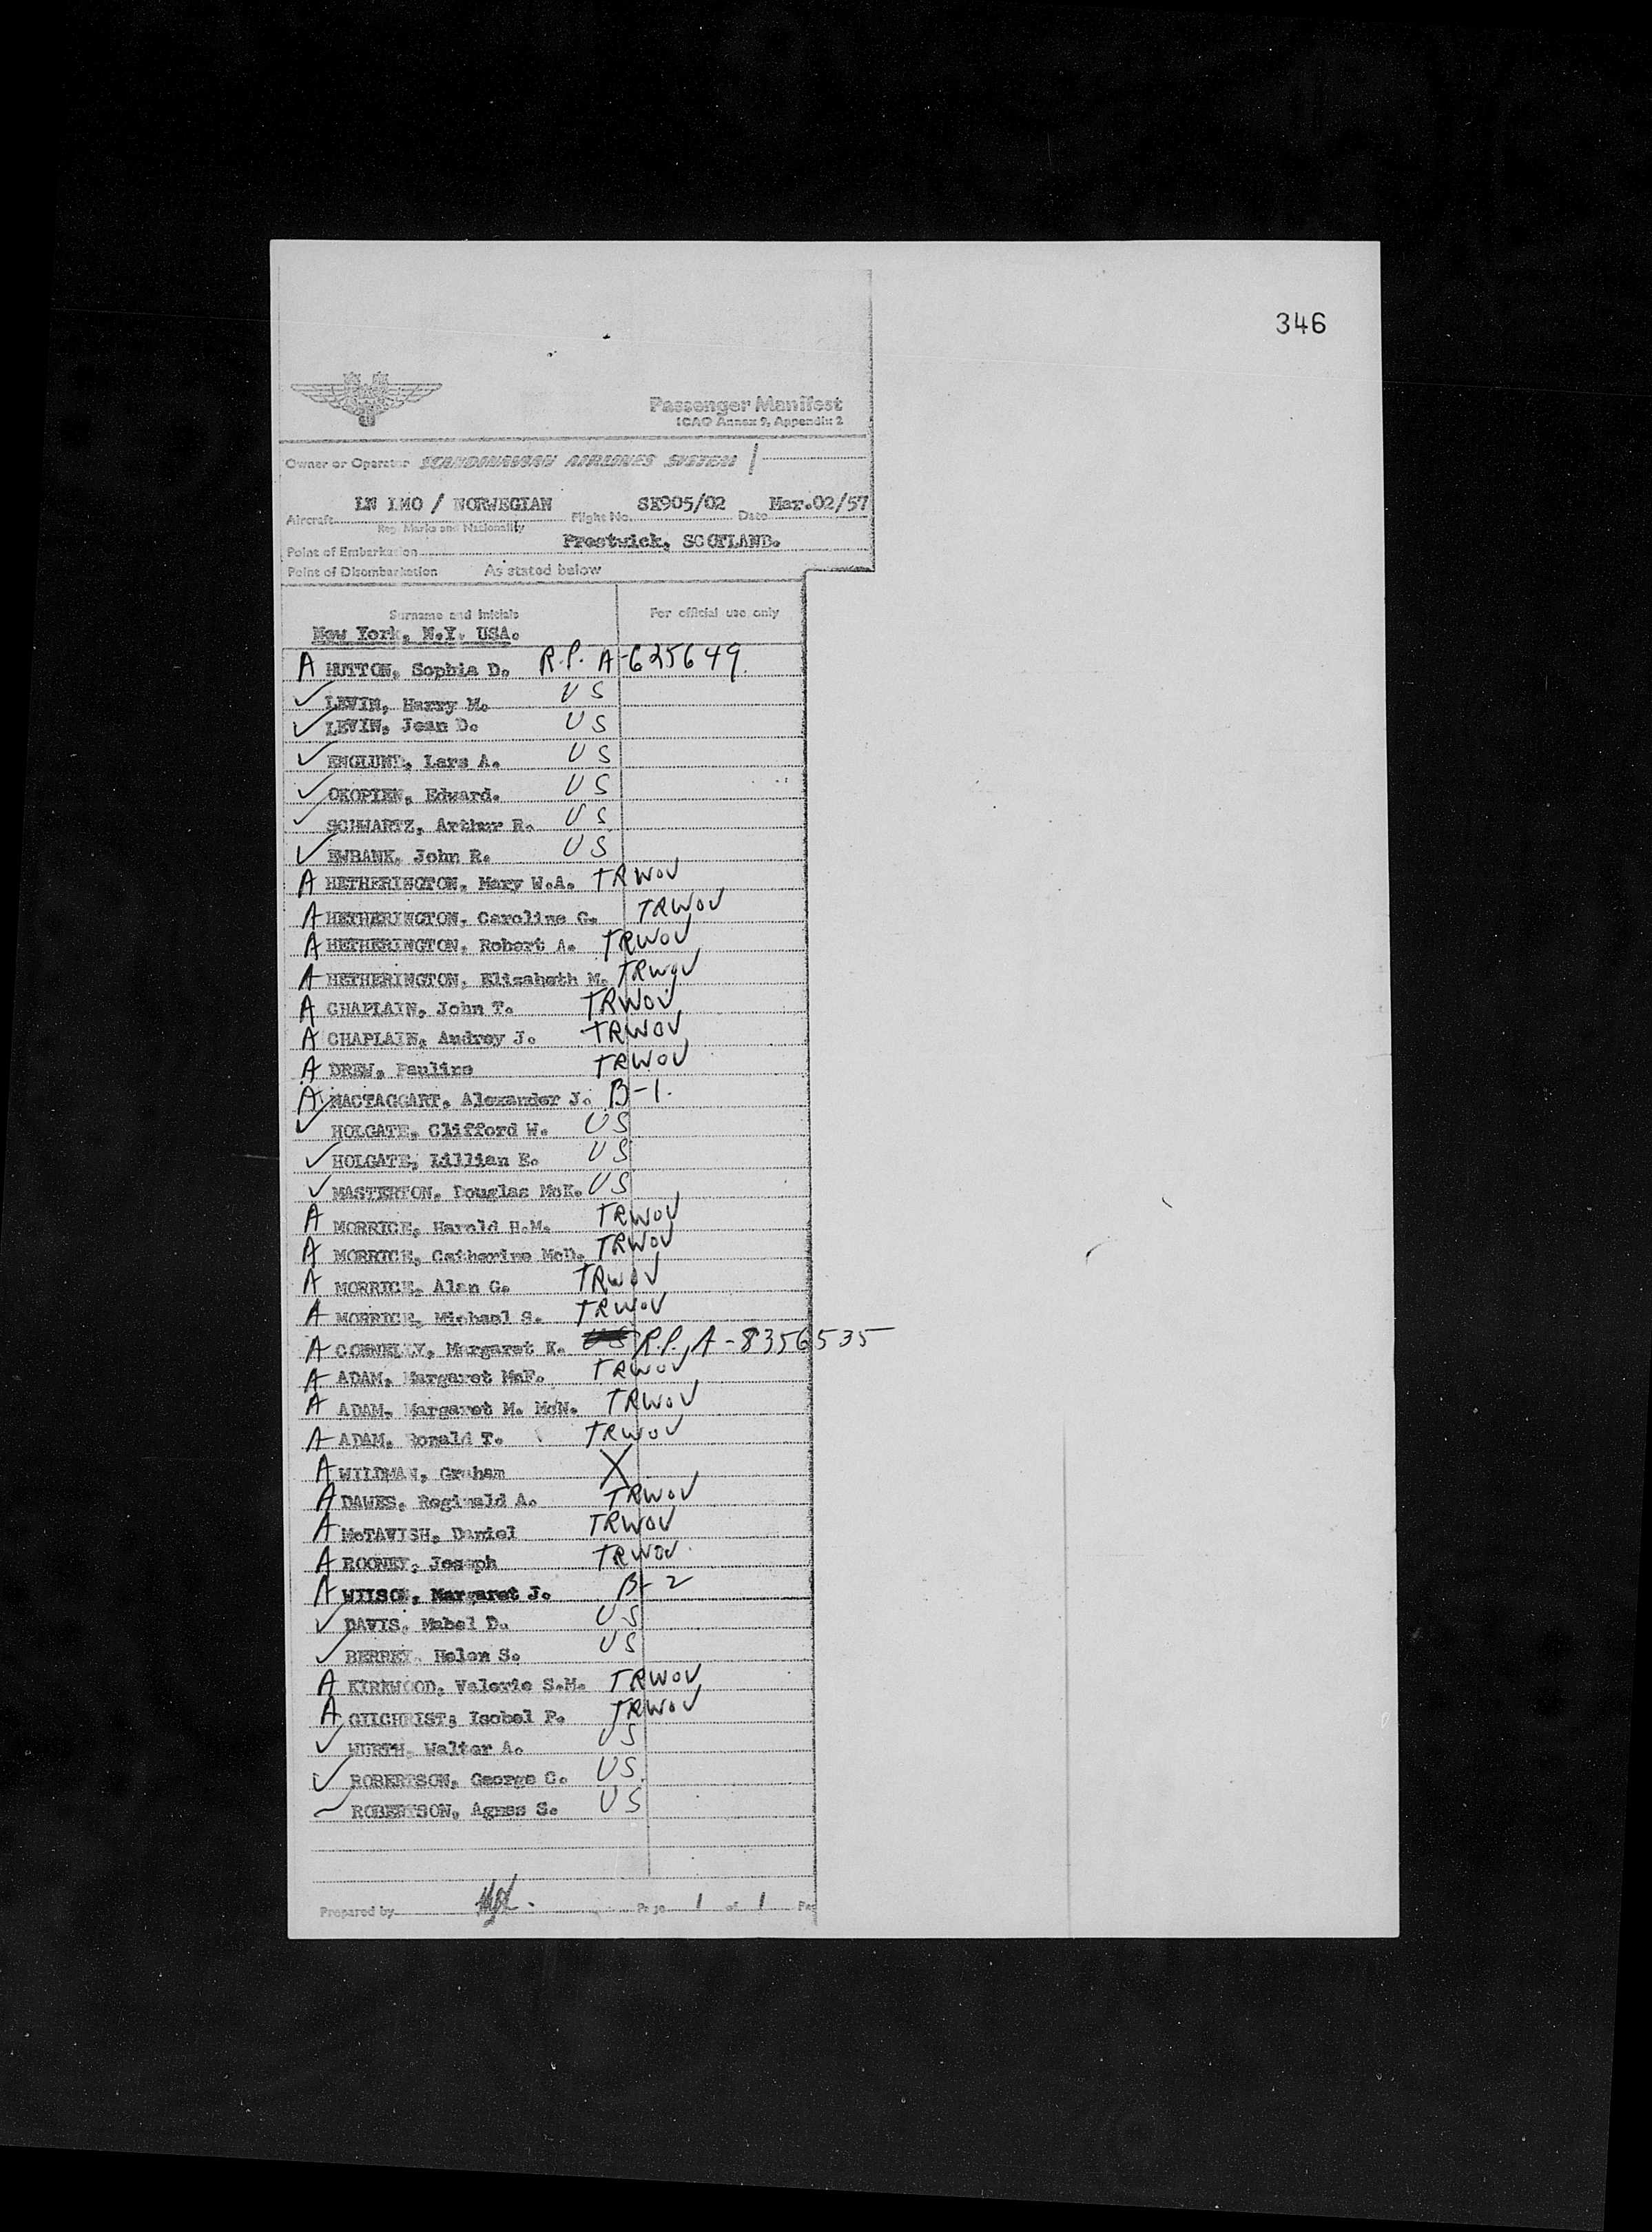 346
Passenger Manifest
ICAO Annex 9, Appendix 2
Owner or Operator SCANDINAVIAN AIRLINES SYSTEM
LN LMO / NORWEGIAN SK905/02 Mar.02/57
Aircraft Flight No. Date
Reg. Marks and Nationality
Prestwick, SCOTLAND.
Point of Embarkation
Point of Disembarkation As stated below
Surname and Initials For official use only
New York, N.Y. USA.
A HUTTON, Sophia D. R.P. A-625649.
✓ LEVIN, Harry M. US
✓ LEVIN, Jean D. US
✓ ENGLUND, Lars A. US
✓ OKOPIEN, Edward. US
✓ SCHWARTZ, Arthur R. US
✓ EWBANK, John R. US
A HETHERINGTON, Mary W.A. TRWOV
A HETHERINGTON, Caroline G. TRWOV
A HETHERINGTON, Robert A. TRWOV
A HETHERINGTON, Elizabeth M. TRWOV
A CHAPLAIN, John T. TRWOV
A CHAPLAIN, Audrey J. TRWOV
A DREW, Pauline TRWOV
A MACTAGGART, Alexander J. B-1.
✓ HOLGATE, Clifford W. US
✓ HOLGATE, Lillian E. US
✓ MASTERTON, Douglas McK. US
A MORRICE, Harold H.M. TRWOV
A MORRICE, Catherine McD. TRWOV
A MORRICE, Alan G. TRWOV
A MORRICE, Michael S. TRWOV
A CONNELLY, Margaret K. R.P. A-8356535
A ADAM, Margaret McF. TRWOV
A ADAM, Margaret M. McN. TRWOV
A ADAM, Ronald T. TRWOV
A WILDMAN, Graham X
A DAWES, Reginald A. TRWOV
A McTAVISH, Daniel TRWOV
A ROONEY, Joseph TRWOV
A WILSON, Margaret J. B-2
✓ DAVIS, Mabel D. US
✓ BERREY, Helen S. US
A KIRKWOOD, Valerie S.M. TRWOV
A GILCHRIST, Isobel P. TRWOV
✓ WURTH, Walter A. US
✓ ROBERTSON, George C. US
ROBERTSON, Agnes S. US
Prepared by Page 1 of 1